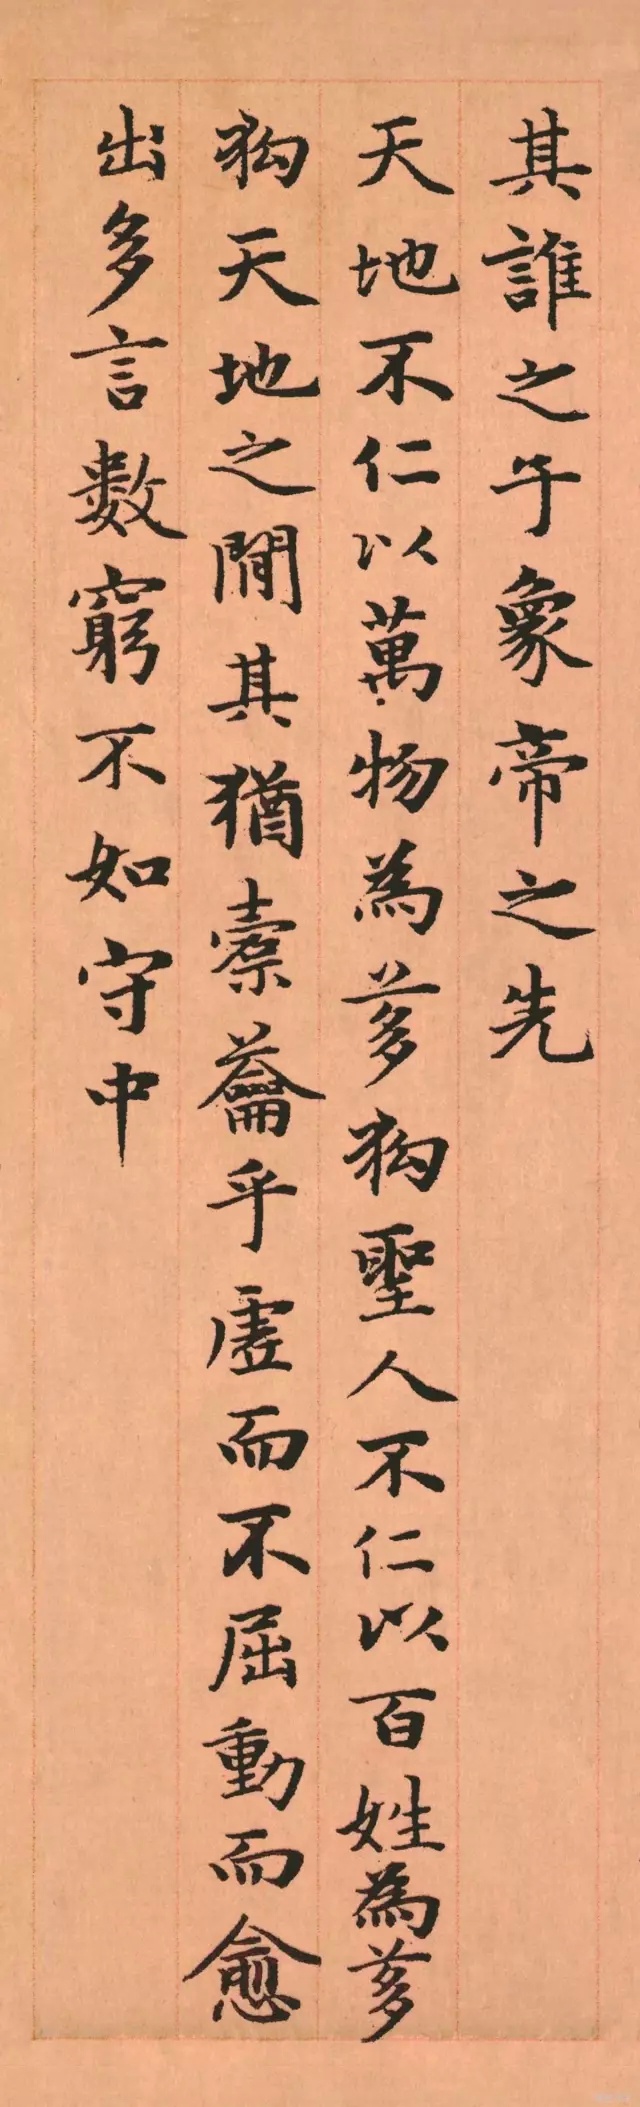 其誰之子象帝之先
天地不仁以萬物為芻狗聖人不仁以百姓為芻
狗天地之閒其猶橐籥乎虛而不屈動而愈
出多言數窮不如守中